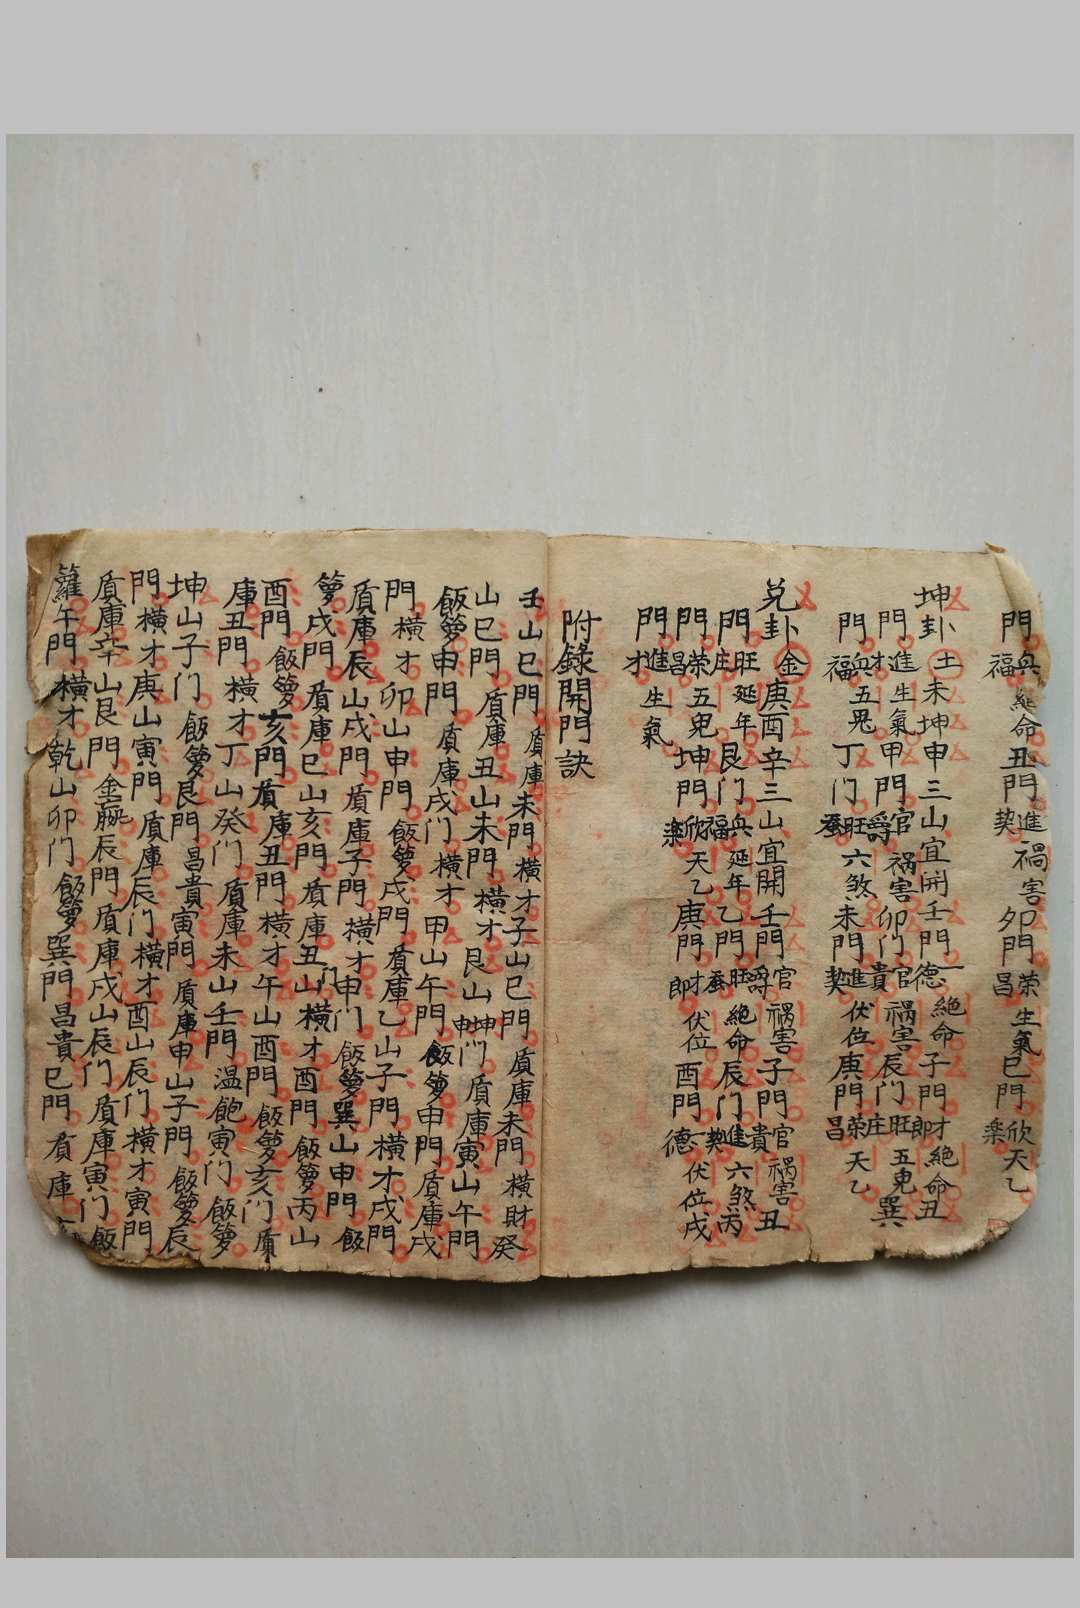 門兵福絶命丑門進契禍害卯門荣昌生氣巳門欣楽天乙
坤卦土未坤申三山宜開壬門德絶命子門才郎絶命丑
門進才生氣甲門官爵禍害卯門官貴禍害辰门旺庄五鬼巽
門兵福五鬼丁门旺蚕六煞未門進契伏位庚門荣昌天乙
兑卦金庚酉辛三山宜開壬門官爵禍害子門官貴禍害丑
門旺庄延年艮门兵福延年乙門旺蚕絶命辰门進契六煞丙
門荣昌五鬼坤門欣楽天乙庚門才郎伏位酉門德伏位戌
門進才生氣
附錄開門訣
壬山巳門盾庫未門横才子山巳門盾庫未門横財癸
山巳門盾庫丑山未門横才艮山坤門申盾庫寅山午門
飯箩申門盾庫戌门横才甲山午門飯箩申門盾庫戌
門横才卯山申門飯箩戌門盾庫乙山子門横才戌門
盾庫辰山戌門盾庫子門横才申门飯箩巽山申門飯
箩戌門盾庫巳山亥門盾庫丑门山横才酉門飯箩丙山
酉門飯箩亥門盾庫丑門横才午山酉門飯箩亥门盾
庫丑門横才丁山癸门盾庫未山壬門温飽寅门飯箩
坤山子门飯箩艮門昌貴寅門盾庫申山子門飯箩辰
門横才庚山寅門盾庫辰门横才酉山辰门横才寅門
盾庫辛山艮門金蠃辰門盾庫戌山辰门盾庫寅门飯
籮午門横才乾山卯门飯箩巽門昌貴巳門盾庫